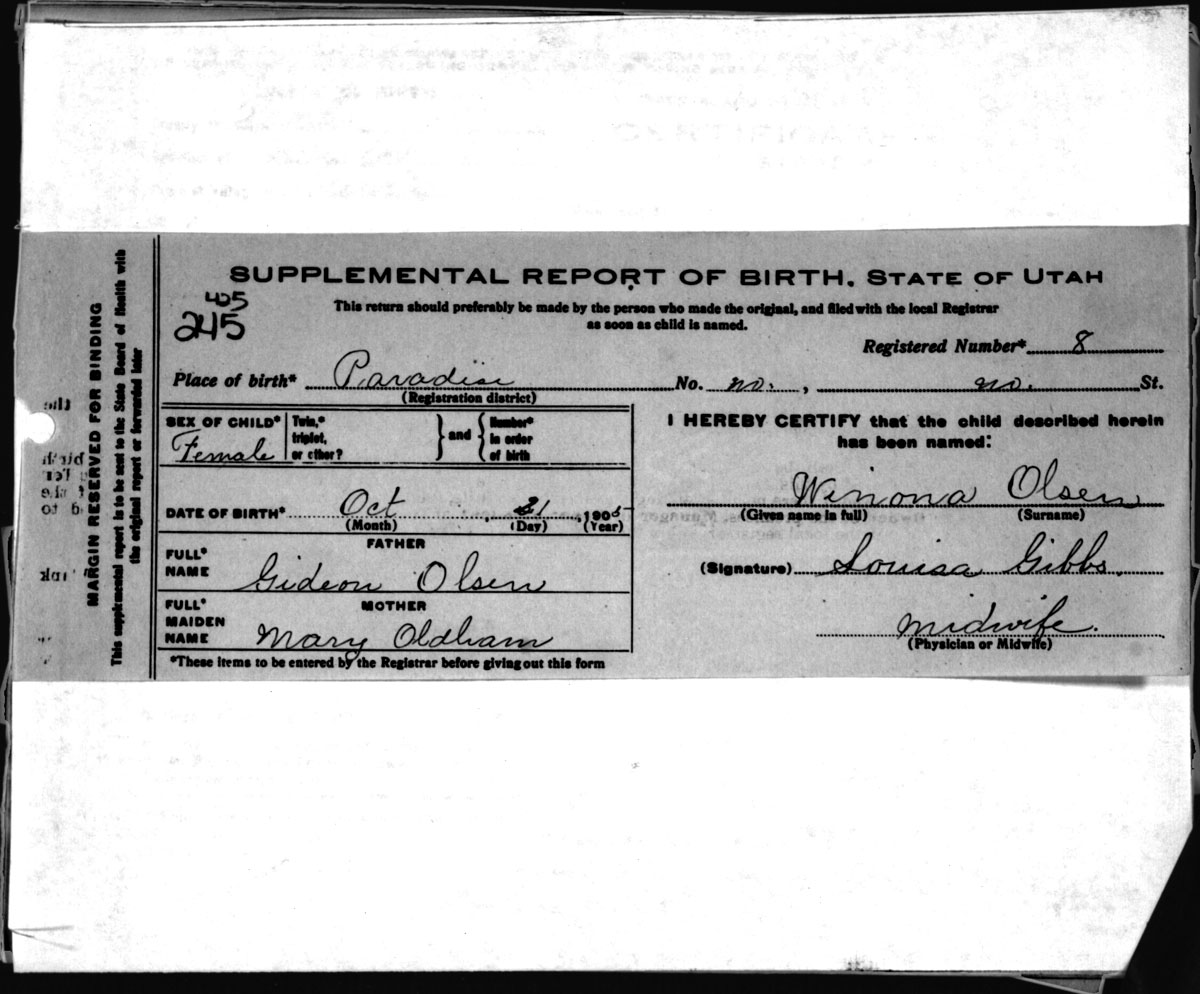 SUPPLEMENTAL REPORT OF BIRTH. STATE OF UTAH
455
245
This return should preferably be made by the person who made the original, and filed with the local Registrar
as soon as child is named.
Registered Number* 8
Place of birth* Paradise No. no. , no. St.
(Registration district)
SEX OF CHILD*
Female
Twin,*
triplet,
or other?
and
Number*
in order
of birth
DATE OF BIRTH* Oct , 21 , 1905
(Month) (Day) (Year)
FATHER
FULL*
NAME Gideon Olsen
MOTHER
FULL*
MAIDEN
NAME Mary Oldham
*These items to be entered by the Registrar before giving out this form
I HEREBY CERTIFY that the child described herein
has been named:
Winona Olsen
(Given name in full) (Surname)
(Signature) Louisa Gibbs.
midwife.
(Physician or Midwife)
MARGIN RESERVED FOR BINDING
This supplemental report is to be sent to the State Board of Health with
the original report or forwarded later